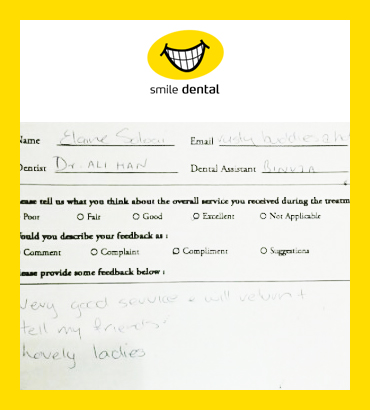 smile dental
Name Elaine Email
Dentist Dr. ALI HAN Dental Assistant BINVIA
ease tell us what you think about the overall service you received during the treatm
Poor Fair Good Excellent Not Applicable
ould you describe your feedback as :
Comment Complaint Compliment Suggestions
ease provide some feedback below :
Very good service & will return +
tell my friends!
Lovely ladies